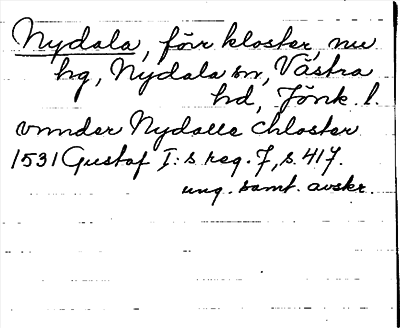 Nydala, förr kloster, nu
hg, Nydala sn, Västra
hd, Jönk. l.
vnnder Nydalle closter
1531 Gustaf I:s reg. 7, s. 417.
ung. samt. avskr.